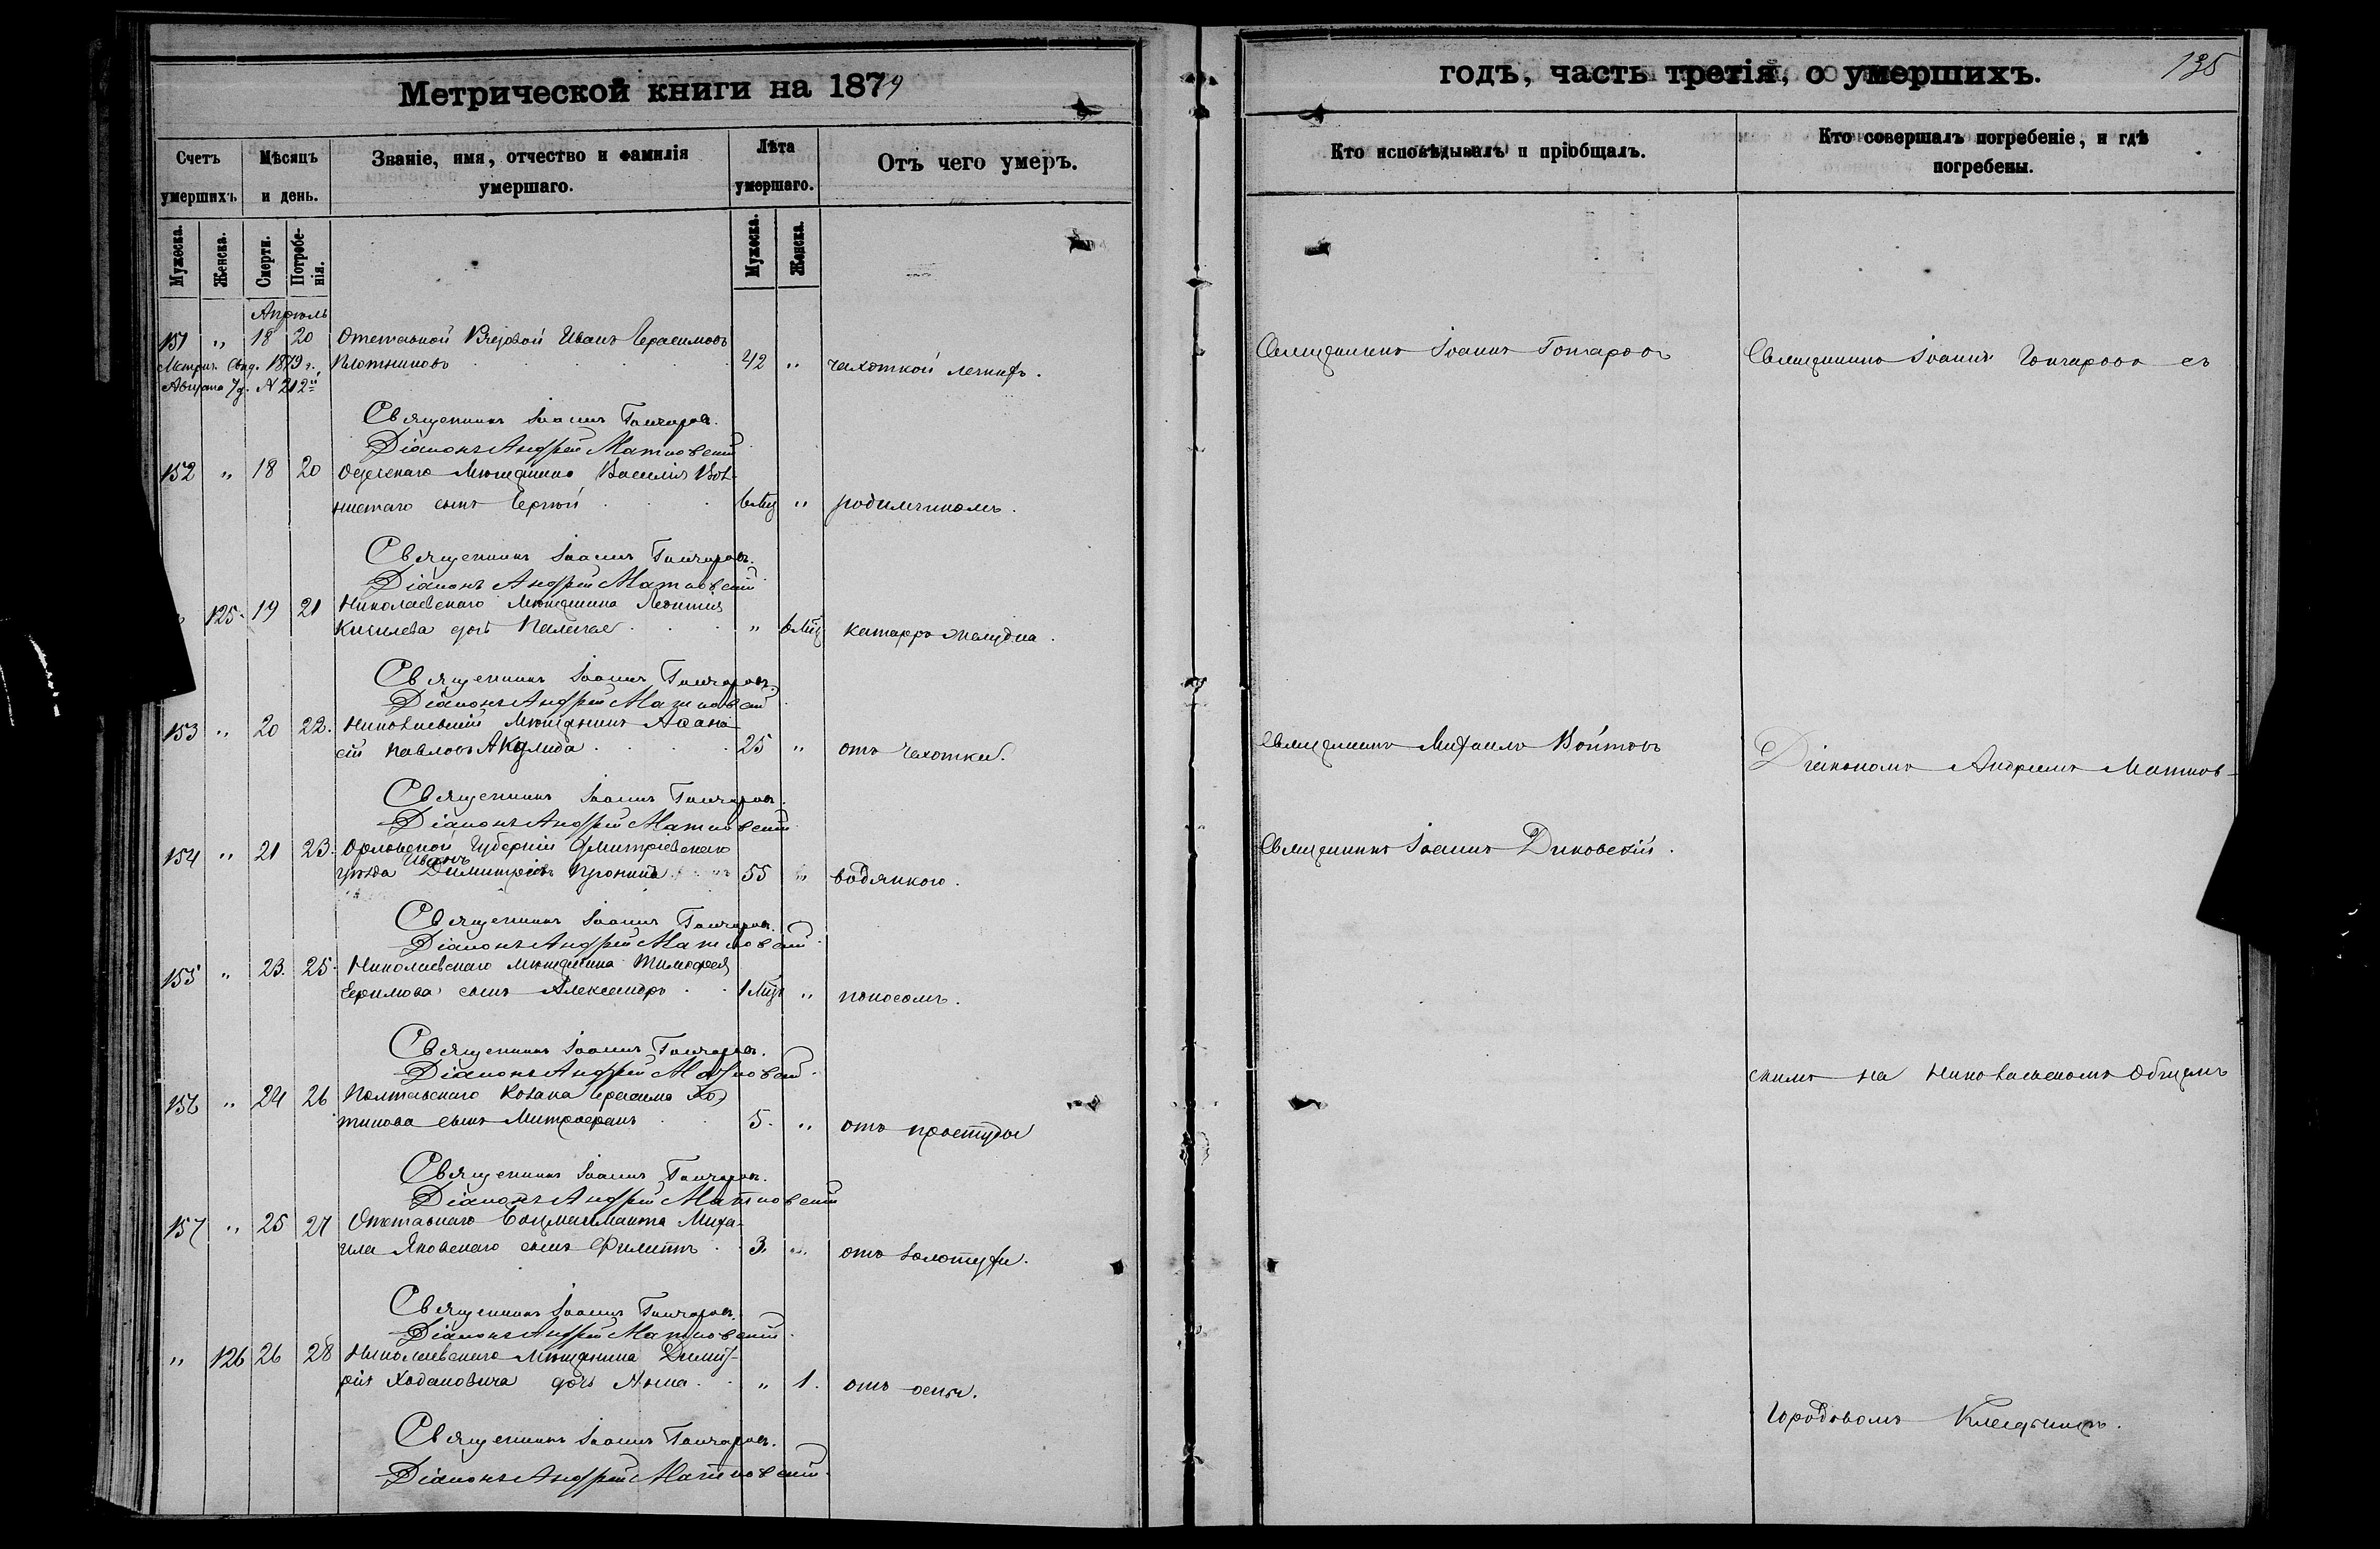 Метрической книги на 1879
годъ, часть третія, о умершихъ.
135
Счетъ умершихъ.
Мѣсяцъ и день.
Званіе, имя, отчество и фамилія умершаго.
Лѣта умершаго.
Отъ чего умеръ.
Кто исповѣдывалъ и пріобщалъ.
Кто совершалъ погребеніе, и гдѣ погребены.
Мужеска.
Женска.
Смерти.
Погребенія.
Мужеска.
Женска.
Апрѣль
151 " 18 20 Отставной Рядовой Иванъ Герасимовъ
Метрич. Свид. 1879 г. Плотниковъ 42 " чахоткой легкихъ.
Августа 7 д. N 212й
Священникъ Іоаннъ Гончаровъ
Священникъ Іоаннъ Гончаровъ съ
Священникъ Іоаннъ Гончаровъ.
Діаконъ Андрей Матковскій
152 " 18 20 Одесскаго Мѣщанина Василія
сынъ Сергій 6 Мц " родимчикомъ.
Священникъ Іоаннъ Гончаровъ.
Діаконъ Андрей Матковскій
125 19 21 Николаевскаго Мѣщанина Леонтія
Киселева дочь Пелагея " 6 Мц катарръ желудка.
Священникъ Іоаннъ Гончаровъ.
Діаконъ Андрей Матковскій
153 " 20 22. Николаевскій Мѣщанинъ Афана
сій Павловъ Акулида 25 " отъ чахотки.
Священникъ Михаилъ Войтовъ
Діакономъ Андреемъ Матков-
Священникъ Іоаннъ Гончаровъ.
Діаконъ Андрей Матковскій
154 " 21 23. Орловской Губерніи Дмитріевскаго
Иванъ
уѣзда Димитріевъ Пронинъ 55 " водянкою.
Священникъ Іоаннъ Диковскій.
Священникъ Іоаннъ Гончаровъ.
Діаконъ Андрей Матковскій
155 " 23. 25. Николаевскаго мѣщанина Тимофея
Ефимова сынъ Александръ 1 Мцъ " поносомъ.
Священникъ Іоаннъ Гончаровъ.
Діаконъ Андрей Матковскій
скимъ на Николаевскомъ Общемъ
156 " 24 26 Полтавскаго Козака Герасима
сынъ Митрофанъ 5. " отъ простуды
Священникъ Іоаннъ Гончаровъ.
Діаконъ Андрей Матковскій
157 " 25 27 Отставнаго Боцманмаита Миха-
ила Яновскаго сынъ Филиппъ 3. " отъ золотухи.
Священникъ Іоаннъ Гончаровъ.
Діаконъ Андрей Матковскій
" 126 26 28 Николаевскаго Мѣщанина Димит-
рія Ходановича дочь Анна " 1. отъ оспы.
Городовомъ Кладбищѣ.
Священникъ Іоаннъ Гончаровъ.
Діаконъ Андрей Матковскій